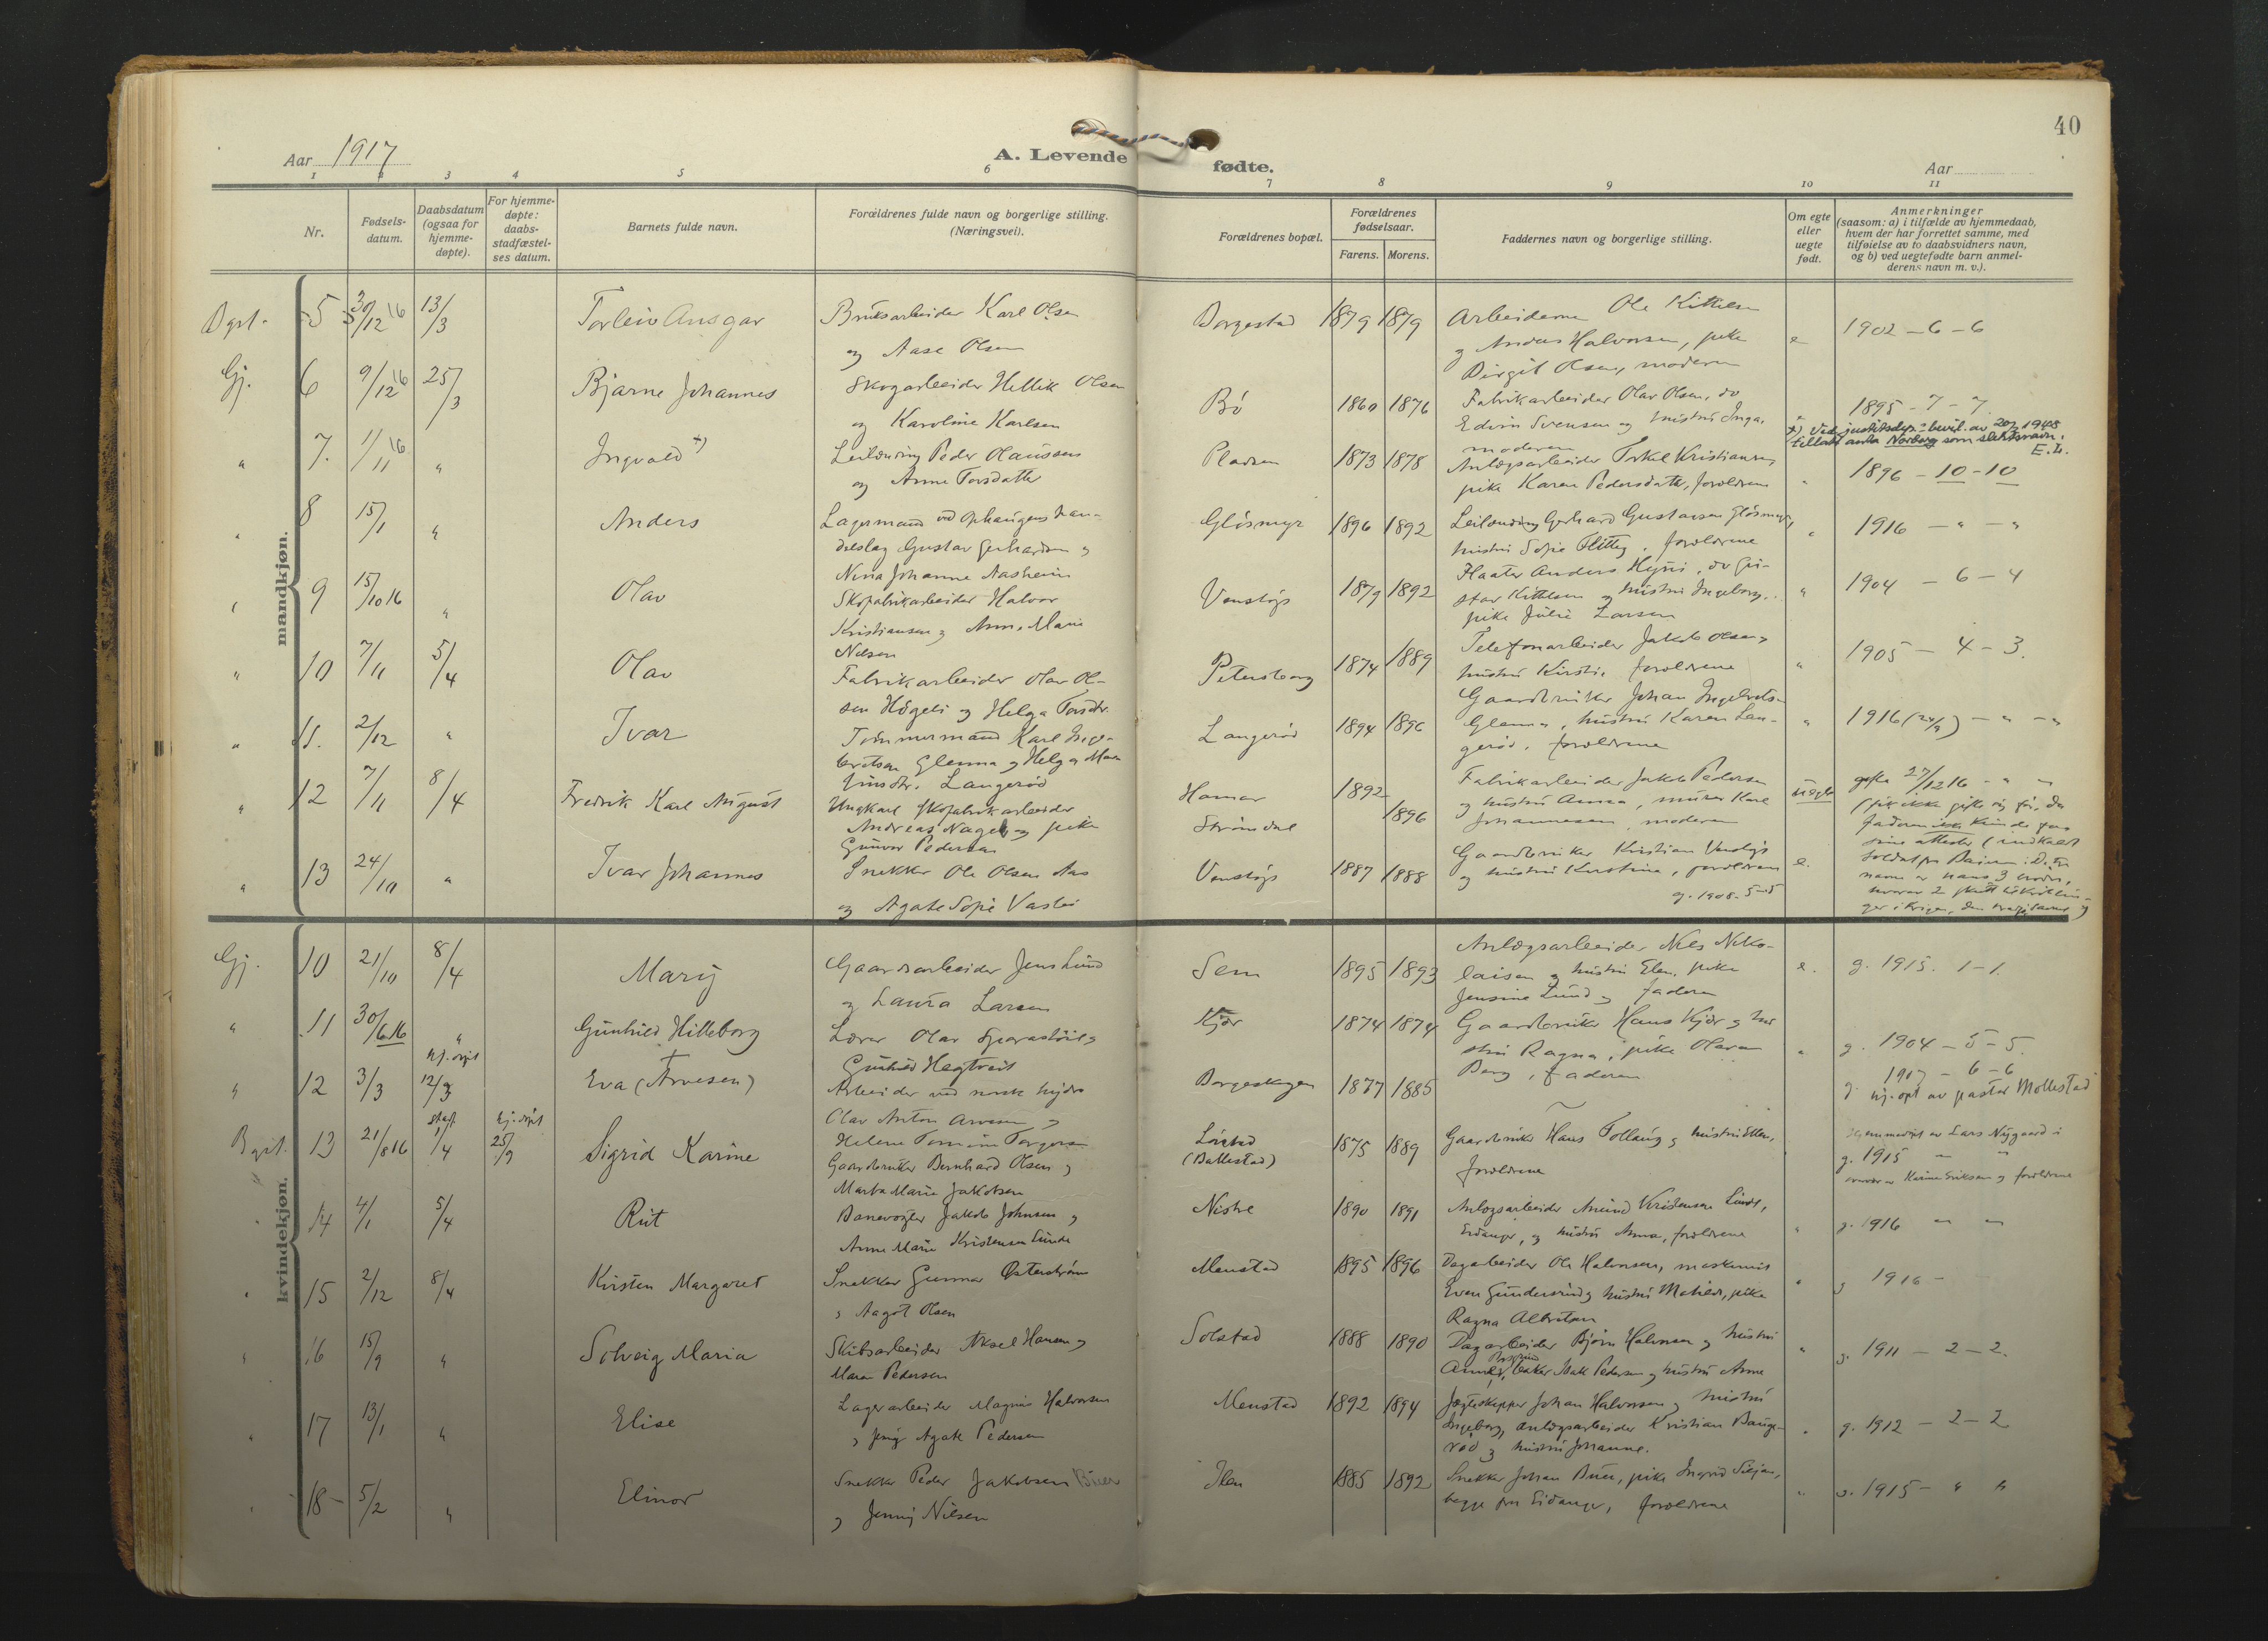 40
Aar 1917
A. Levende fødte.
Aar
1 2 3 4 5 6 7 8 9 10 11
Nr.
Fødsels-
datum.
Daabsdatum
(ogsaa for
hjemme-
døpte).
For hjemme-
døpte:
daabs-
stadfæstel-
ses datum.
Barnets fulde navn.
Forældrenes fulde navn og borgerlige stilling.
(Næringsvei).
Forældrenes bopæl.
Forældrenes
fødselsaar.
Farens. Morens.
Faddernes navn og borgerlige stilling.
Om egte
eller
uegte
født.
Anmerkninger
(saasom: a) i tilfælde av hjemmedaab,
hvem der har forrettet samme, med
tilføielse av to daabsvidners navn,
og b) ved uegtefødte barn anmel-
derens navn m. v.).
mandkjøn.
5 30/12 16 13/3 Torleiv Ansgar
Bruksarbeider Karl Olsen
og Aase Olsen
Borgestad 1879 1879
Arbeiderne Ole Kittilsen
og Anders Halvorsen, pike
Birgit Olsen, moderen
e 1902 - 6 - 6
Gj. 6 9/12 16 25/3 Bjarne Johannes
Skogarbeider Hellik Olsen
og Karoline Karlsen
Bö 1860 1876
Fabrikarbeider Olav Olsen, do
Edvin Svensen og hustru Inga,
moderen
" 1895 - 7 - 7
+) Ved justitsdep. bevil. av 20/7 1948
tillatt anta Norberg som slektsnavn.
E. L.
" 7. 1/11 16 " Ingvald +)
Leilending Peder Olaussen
og Anne Torsdatter
Pladsen 1873 1878
Anlægsarbeider Torkel Kristiansen,
pike Karen Pedersdatter, forældrene
" 1896 - 10 - 10
" 8 15/1 " Anders
Lagermand ved Ophaugens han-
delslag Gustav Gerhardsen og
Nina Johanne Aasheim
Glösmyr 1896 1892
Leilending Gerhard Gustavsen Glösmyr,
hustru Sofie, forældrene
" 1916 - " - "
" 9 15/10 16 " Olav
Skofabrikarbeider Halvor
Kristiansen og Anne Marie
Nilsen
Venstöp 1879 1892
Anders, do Gu-
stav Kittilsen og hustru Ingeborg,
pike Julie Larsen
" 1904 - 6 - 4
" 10 7/11 5/4 Olav
Fabrikarbeider Olav Ol-
sen Högeli og Helga Torsdtr.
Petersborg 1874 1889
Telefonarbeider Jakob Olsen,
hustru Kirstie, forældrene
" 1905 - 4 - 3.
" 11. 2/12 " Ivar
Tømmermand Karl Inge-
bretsen Glenna og Helga
Langeröd
Langeröd 1894 1896
Gaardbruker Johan Ingebretsen
Glenna, hustru Karen Lan-
geröd, forældrene
" 1916 (24/9) - " - "
" 12 7/11 8/4 Fredrik Karl August
Ungkarl Skofabrikarbeider
Andreas Nagel og pike
Gunvor Pedersen
Hamar
Strömdal
1892
1896
Fabrikarbeider Jakob Pedersen
og hustru Anna, murer Karl
Johannesen, moderen
uegte gifte 27/12 16 - " -
(fik ikke gifte sig før, da
faderen ikke kunde faa
sine attester (indkaldt
" 13 24/10 " Ivar Johannes
Snekker Ole Olsen Aas
og Agate Sofie Vasli
Venstöp 1887 1888
Gaardbruker Kristian Venstöp
og hustru Kirstine, forældrene
g. 1908 - 5 - 5
e.
kvindekjøn.
Gj. 10 21/10 8/4 Mary
Gaardsarbeider Jens Lund
og Laura Larsen
Sem 1895 1893
Anlægsarbeider Nels Niko-
laisen og hustru Elen, pike
Jensine Lund og faderen
e. g. 1915. 1 - 1.
" 11 30/6 16 " Gunhild Hilleborg
Lærer Olav Sparastöil og
Gunhild Hegtveit
Kjær 1874 1874
Gaardbruker Hans Kjær og hu-
stru Ragna, pike Olava
Berg, faderen
" g. 1904 - 5 - 5.
hj. döpt
" 12 3/3 12/3 Eva (Arvesen)
Arbeider ved norsk hydro
Olav Anton Arvesen og
Helene Tomine Torgersen
Borgeskogen 1877 1885
1917 - 6 - 6
g. hj. dpt av pastor Mollestad
Bgst. 13 21/8 16 stadf. 1/4 hj. döpt 25/9 Sigrid Karine
Gaardbruker Bernhard Olsen og
Marta Marie Jakobsen
(Ballestad)
1875 1889
Gaardbruker Hans Tollaug og hustru Ellen,
forældrene
Hjemmedöpt av Lars Nygaard i
g. 1915 " "
Karine Eriksen og forældrene
" 14 4/1 5/4 Rut
Banevogter Jakob Johnsen og
Anne Marie Kristensen Lunde
Nistre 1890 1891
Anlægsarbeider Amund Kristensen Lunde,
Eidanger, og hustru Anna, forældrene
" g. 1916 " "
" 15 2/12 8/4 Kirsten Margaret
Snekker Gunnar Østerström
og Aagot Olsen
Menstad 1895 1896
Dagarbeider Ole Halvorsen, maskinist
Even Gundersen og hustru Matilde, pike
Ragna Albretsen
" g 1916 -
" 16 15/9 " Solveig Maria
Skibsarbeider Aksel Hansen og
Maren Pedersen
Solstad 1888 1890
Dagarbeider Bjørn Halvorsen og hustru
baker Isak Pedersen og hustru Anne
" g. 1911 - 2 - 2.
" 17 13/1 " Elise
Lagerarbeider Magnus Halvorsen
og Jenny Agate Pedersen
Menstad 1892 1894
Jægteskipper Johan Halvorsen og hustru
Ingeborg, anlægsarbeider Kristian Bauge-
röd og hustru Johanne.
" g. 1912 - 2 - 2
" 18 - 5/2 " Elinor
Snekker Peder Jakobsen Buer
og Jenny Nilsen
Ilen 1885 1892
Snekker Johan Buer, pike Ingrid Siljan,
begge fra Eidanger, forældrene
" g. 1915 - " "